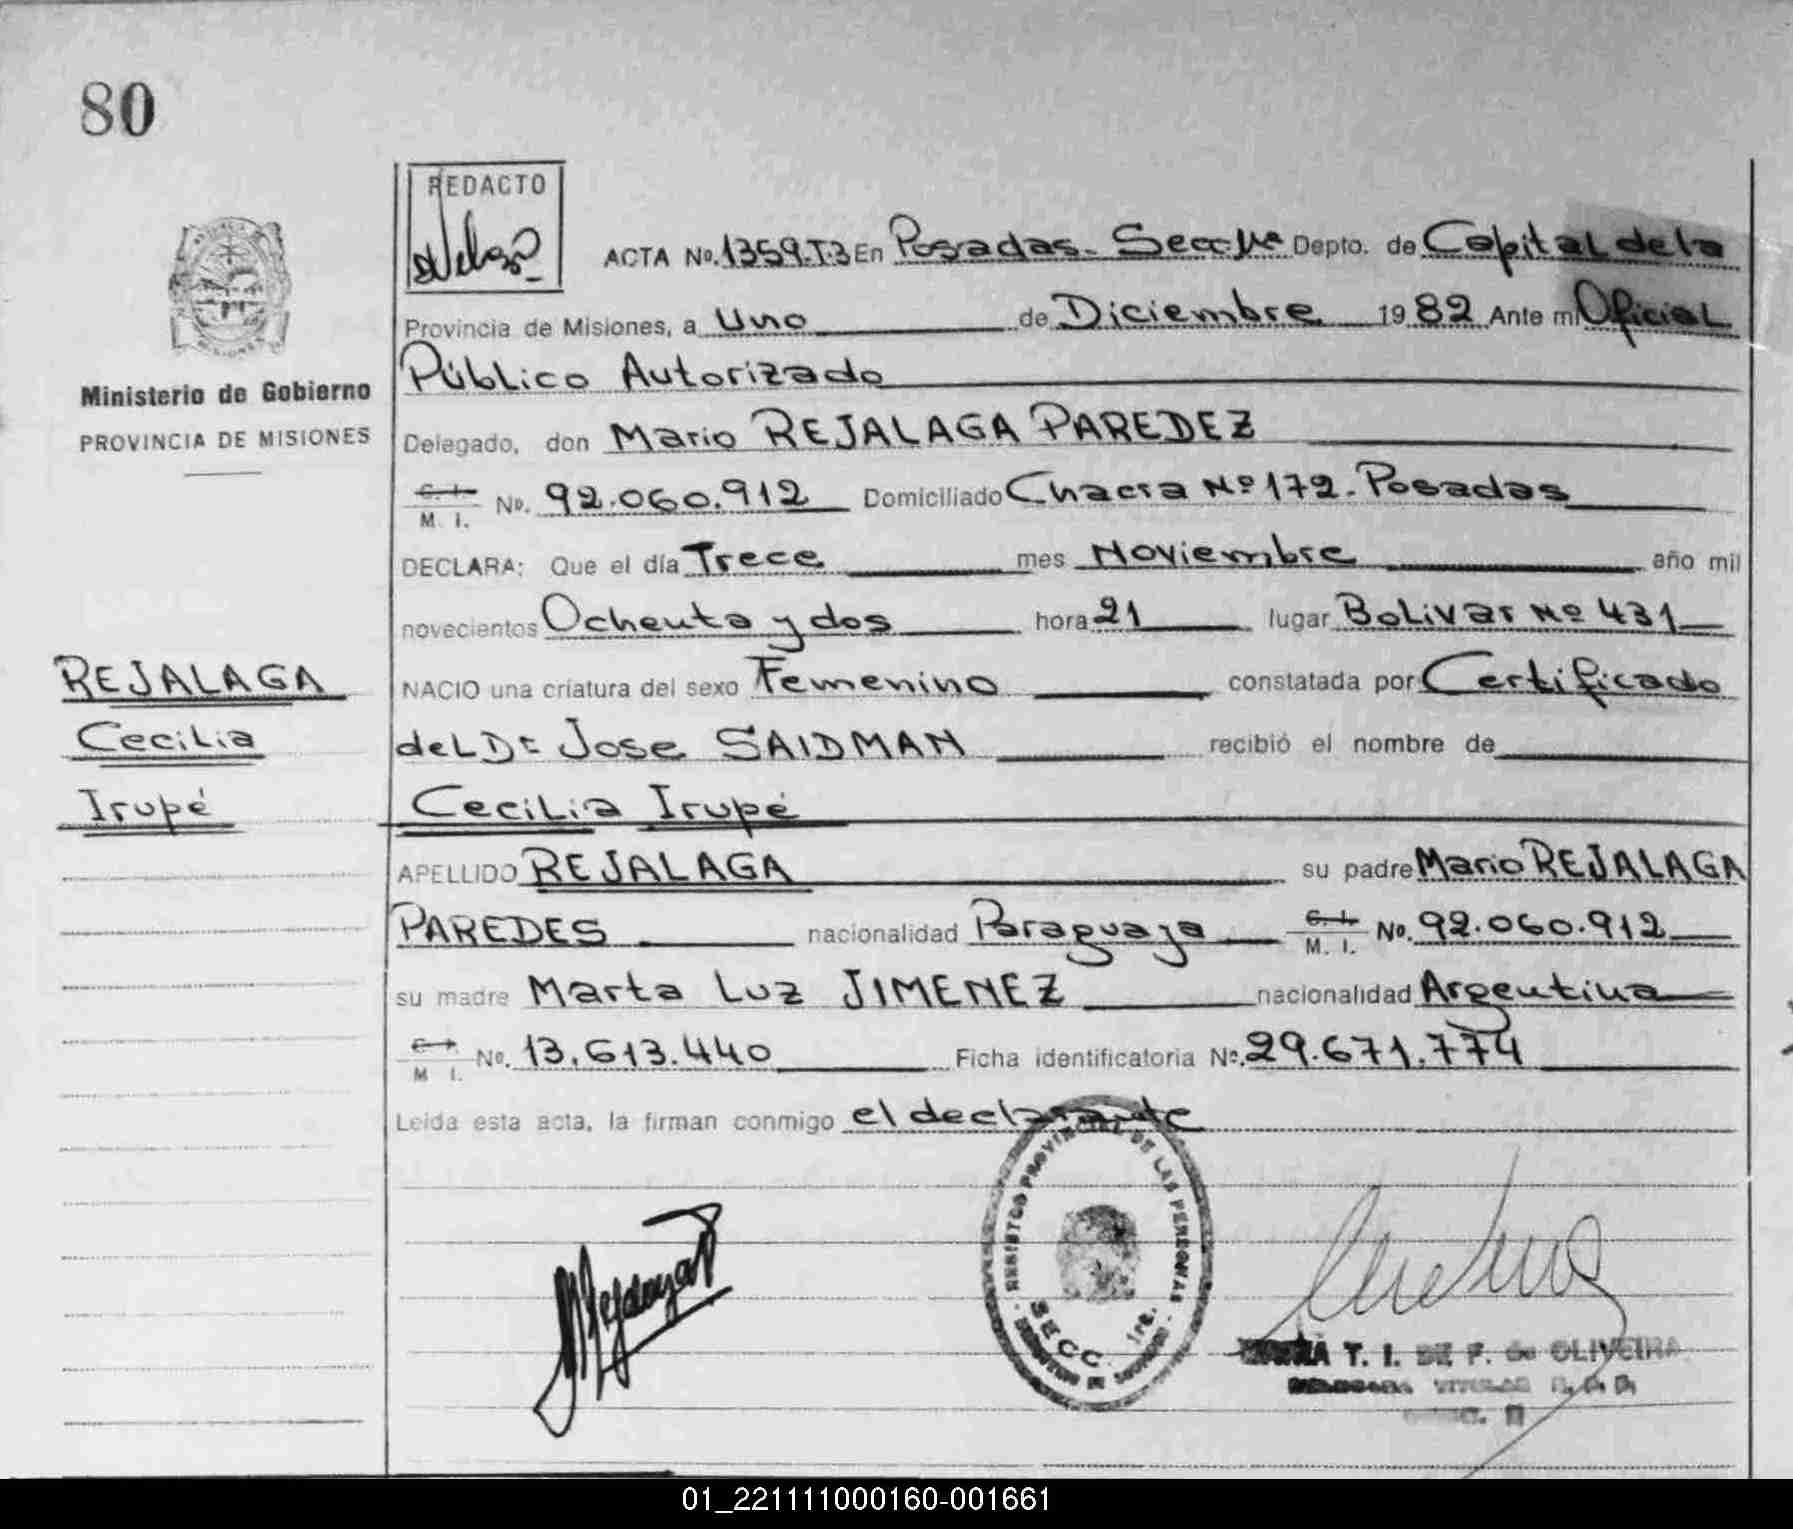 80
REDACTO
ACTA No. 1359.T.3 En Posadas. Secc. 1ra Depto. de Capital de la
Provincia de Misiones, a Uno de Diciembre 1982 Ante mi Oficial
Público Autorizado
Ministerio de Gobierno
PROVINCIA DE MISIONES
Delegado, don Mario REJALAGA PAREDEZ
C. I.
M. I. No. 92.060.912 Domiciliado Chacra Nº 172. Posadas
DECLARA: Que el día Trece mes Noviembre año mil
novecientos Ochenta y dos hora 21 lugar Bolivar Nº 431
REJALAGA
Cecilia
Irupé
NACIO una criatura del sexo Femenino constatada por Certificado
del Dr Jose SAIDMAN recibió el nombre de
Cecilia Irupé
APELLIDO REJALAGA su padre Mario REJALAGA
PAREDES nacionalidad Paraguaya C. I.
M. I. No. 92.060.912
su madre Marta Luz JIMENEZ nacionalidad Argentina
M I. No. 13.613.440 Ficha identificatoria No. 29.671.774
Leida esta acta, la firman conmigo el declarante
REGISTRO PROVINCIAL DE LAS PERSONAS
SECC. 1ra.
T. I. DE F. de OLIVEIRA
01_221111000160-001661